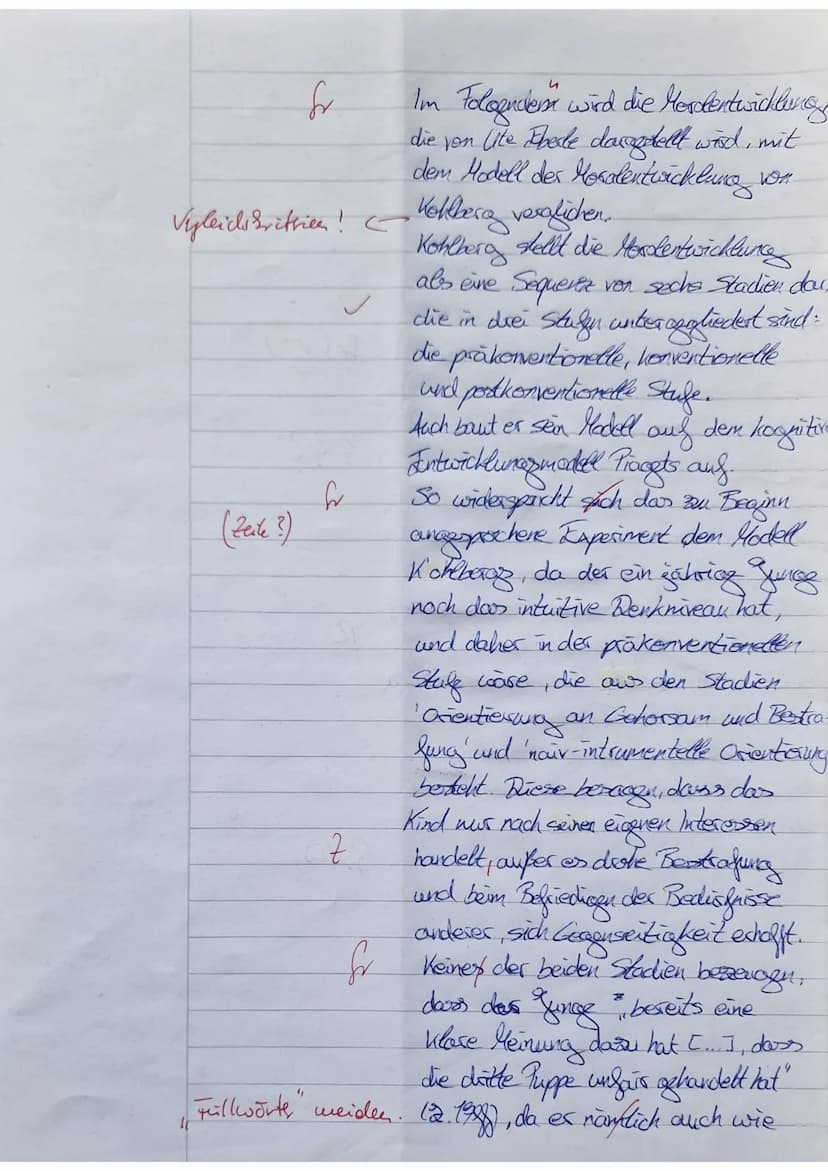 Gr
Im Folgendem n wird die Moralentwicklung,
die von Ute Eberle dargstellt wird, mit
dem Modell der Moralentwicklung von
Vgleichskritrien! ← Kohlberg verglichen.
Kohlberg stellt die Moralentwicklung
als eine Sequenz von sechs Stadien dar,
✓ die in drei Stufen untergegliedert sind:
die präkonventionelle, konventionelle
und postkonventionelle Stufe.
Auch baut er sein Modell auf dem kognitiv
Entwicklungsmodell Piagets auf.
Gr So widerspricht sich das zu Beginn
(Zeile?) angesprochene Experiment dem Modell
Kohlbergs, da der ein jährige Junge
noch das intuitive Denkniveau hat,
und daher in der präkonventionellen
Stufe wäre, die aus den Stadien
'Orientierung an Gehorsam und Bestra-
fung' und 'naiv-intrumentelle Orientierung
besteht. Diese besagen, dass das
Kind nur nach seinen eigenen Interessen
Z handelt, außer es drohe Bestrafung
und beim Befriedigen der Bedürfnisse
anderer, sich Gegenseitigkeit erhofft.
Gr Keines der beiden Stadien bezeugen,
dass der Junge „bereits eine
klare Meinung dazu hat [...], dass
die dritte Puppe unfair gehandelt hat"
„Füllwörter" meiden. da es nämlich auch wie